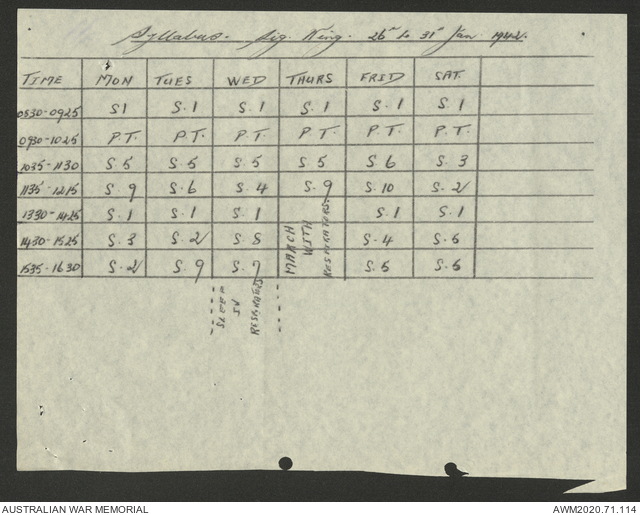 Syllabus. Sig. Wing. 26th to 31st Jan 1942.
TIME MON TUES WED THURS FRID SAT.
0830-0925 S1 S.1 S.1 S.1 S.1 S.1
0930-1025 P.T. P.T. P.T. P.T. P.T. P.T.
1035-1130 S.5 S.5 S.5 S.5 S.6 S.3
1135-1215 S.9 S.6 S.4 S.9 S.10 S.2
1330-1425 S.1 S.1 S.1 S.1 S.1
1430-1525 S.3 S.2 S.8 S.4 S.5
1535-1630 S.2 S.9 S.7 S.5 S.5
MARCH
WITH
RESPIRATORS.
SLEEP
IN
RESPIRATORS
AUSTRALIAN WAR MEMORIAL
AWM2020.71.114